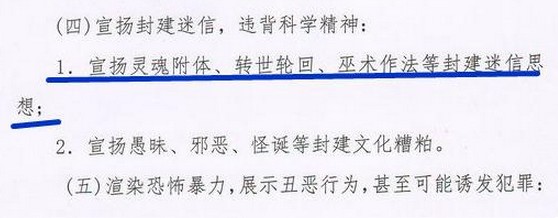 (四)宣扬封建迷信，违背科学精神：
1. 宣扬灵魂附体、转世轮回、巫术作法等封建迷信思
想；
2. 宣扬愚昧、邪恶、怪诞等封建文化糟粕。
(五)渲染恐怖暴力,展示丑恶行为,甚至可能诱发犯罪：